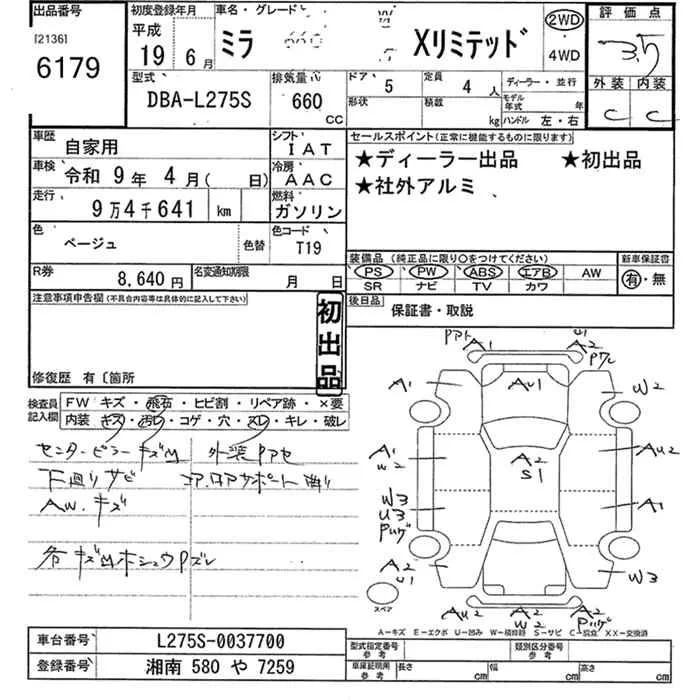 出品番号
[2136]
6179
初度登録年月
平成
19 6月
車名・グレード
ミラ 660 Xリミテッド
2WD
・
4WD
評価点
3.5
外装 内装
C C
型式
DBA-L275S
排気量
660 CC
ドア 5
形状
定員 4 人
積載 kg
ディーラー・並行
モデル年式 年
ハンドル 左・右
車歴 自家用
シフト IAT
車検 令和 9年 4月( 日)
冷房 AAC
走行 9万4千641 km
燃料 ガソリン
色 ベージュ 色替
色コード T19
R券 8,640円
名変通知期限 月 日
セールスポイント(正常に機能するものに限ります)
★ディーラー出品 ★初出品
★社外アルミ
装備品 (純正品に限り○をつけてください)
PS PW ABS エアB AW
SR ナビ TV カワ
新車保証書
有・無
後日品 保証書・取説
注意事項申告欄 (不具合内容等は具体的に記入して下さい)
初出品
修復歴 有〔箇所
検査員記入欄
FW キズ・飛石・ヒビ割・リペア跡・×要
内装 キズ・汚レ・コゲ・穴・スレ・キレ・破レ
センターピラーキズM 外装Pアセ
下廻りサビ コア.ロアサポート曲り
AW.キズ
各キズMホシュウPズレ
Pアト A1
U1 A2 Pワレ
A1
AU1
W2
A1 W2
A2 S1
AU2
W3 U3 Pハゲ
A1
A2 U1
W3
スペア
AU2
A2 W2
A2 Pハゲ
A−キズ E−エクボ U−凹み W−補修跡 S−サビ C−腐食 XX−交換済
車台番号 L275S-0037700
登録番号 湘南 580 や 7259
型式指定番号 参考
類別区分番号 参考
車庫証明用 参考 長さ cm 幅 cm 高さ cm